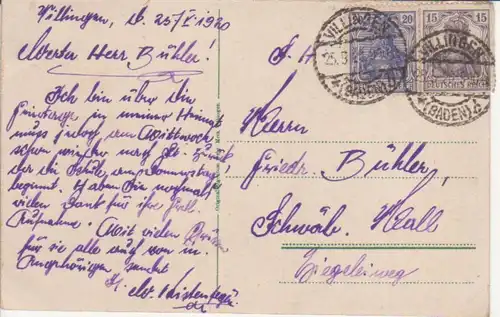 Villingen, d. 25/I 1920
Werter Herr Bühler!
Ich bin über die
Feiertage in meiner Heimat
muss jedoch am Mittwoch
schon wieder nach St. zurück
da die Schule am Donnerstag
beginnt. Haben Sie nochmals
vielen Dank für ihre frdl.
Aufnahme. Mit vielen Grüßen
für sie alle auch von m.
Angehörigen sendet
VILLINGEN
(BADEN)
20
15 15
DEUTSCHES REICH
VILLINGEN
(BADEN)
Herrn
Friedr. Bühler,
Schwäb. Hall
Ziegeleiweg